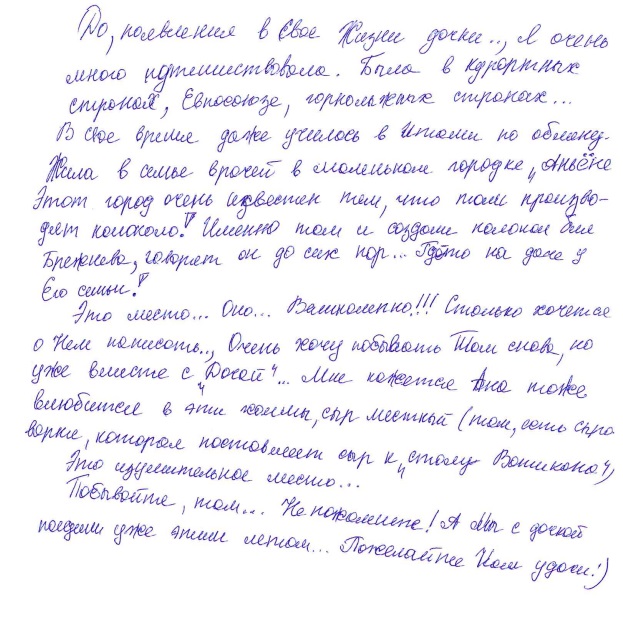 До, появления в Свое Жизни дочки.., Я очень
много путешествовала. Была в курортных
странах, Евросоюзе, горнолыжных странах...
В свое время даже училась в Италии по обмену.
Жила в семье врачей в маленьком городке „Аньёне
Этот город очень известен тем, что там произво-
дят колокола! Именно там и создали колокол для
Брежнева, говорят он до сих пор... Где-то на даче у
Его семьи!
Это место... Оно... Великолепно!!! Столько хочется
о Нем написать.., Очень хочу побывать Там снова, но
уже вместе с „Дочой"... Мне кажется Она тоже
влюбится в эти холмы, сыр местный (там, есть сыро
варни, которая поставляет сыр к „столу Ватикана"),
Это изумительное место...
Побывайте, там... Не пожалеете! А Мы с дочкой
поедем уже этим летом... Пожелайте Нам удачи!)